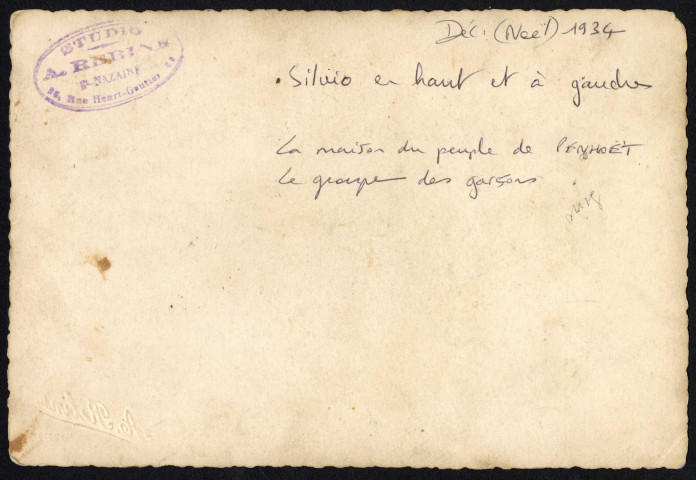 STUDIO
A. REBIN
St-NAZAIRE
Rue Henri-Gautier
Déc. (Noël) 1934
Silvio en haut et à gauche
La maison du peuple de PENHOËT
Le groupe des garçons